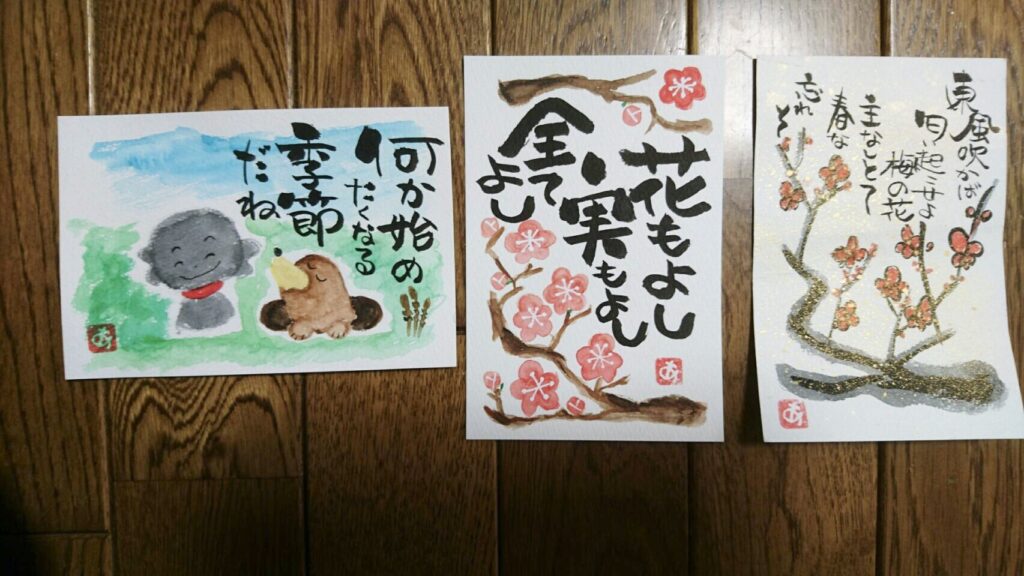 何か始め
たくなる
季節
だね。
花もよし
実もよし
全て
よし
東風吹かば
匂ひ起こせよ
梅の花
主なしとて
春な
忘れそ